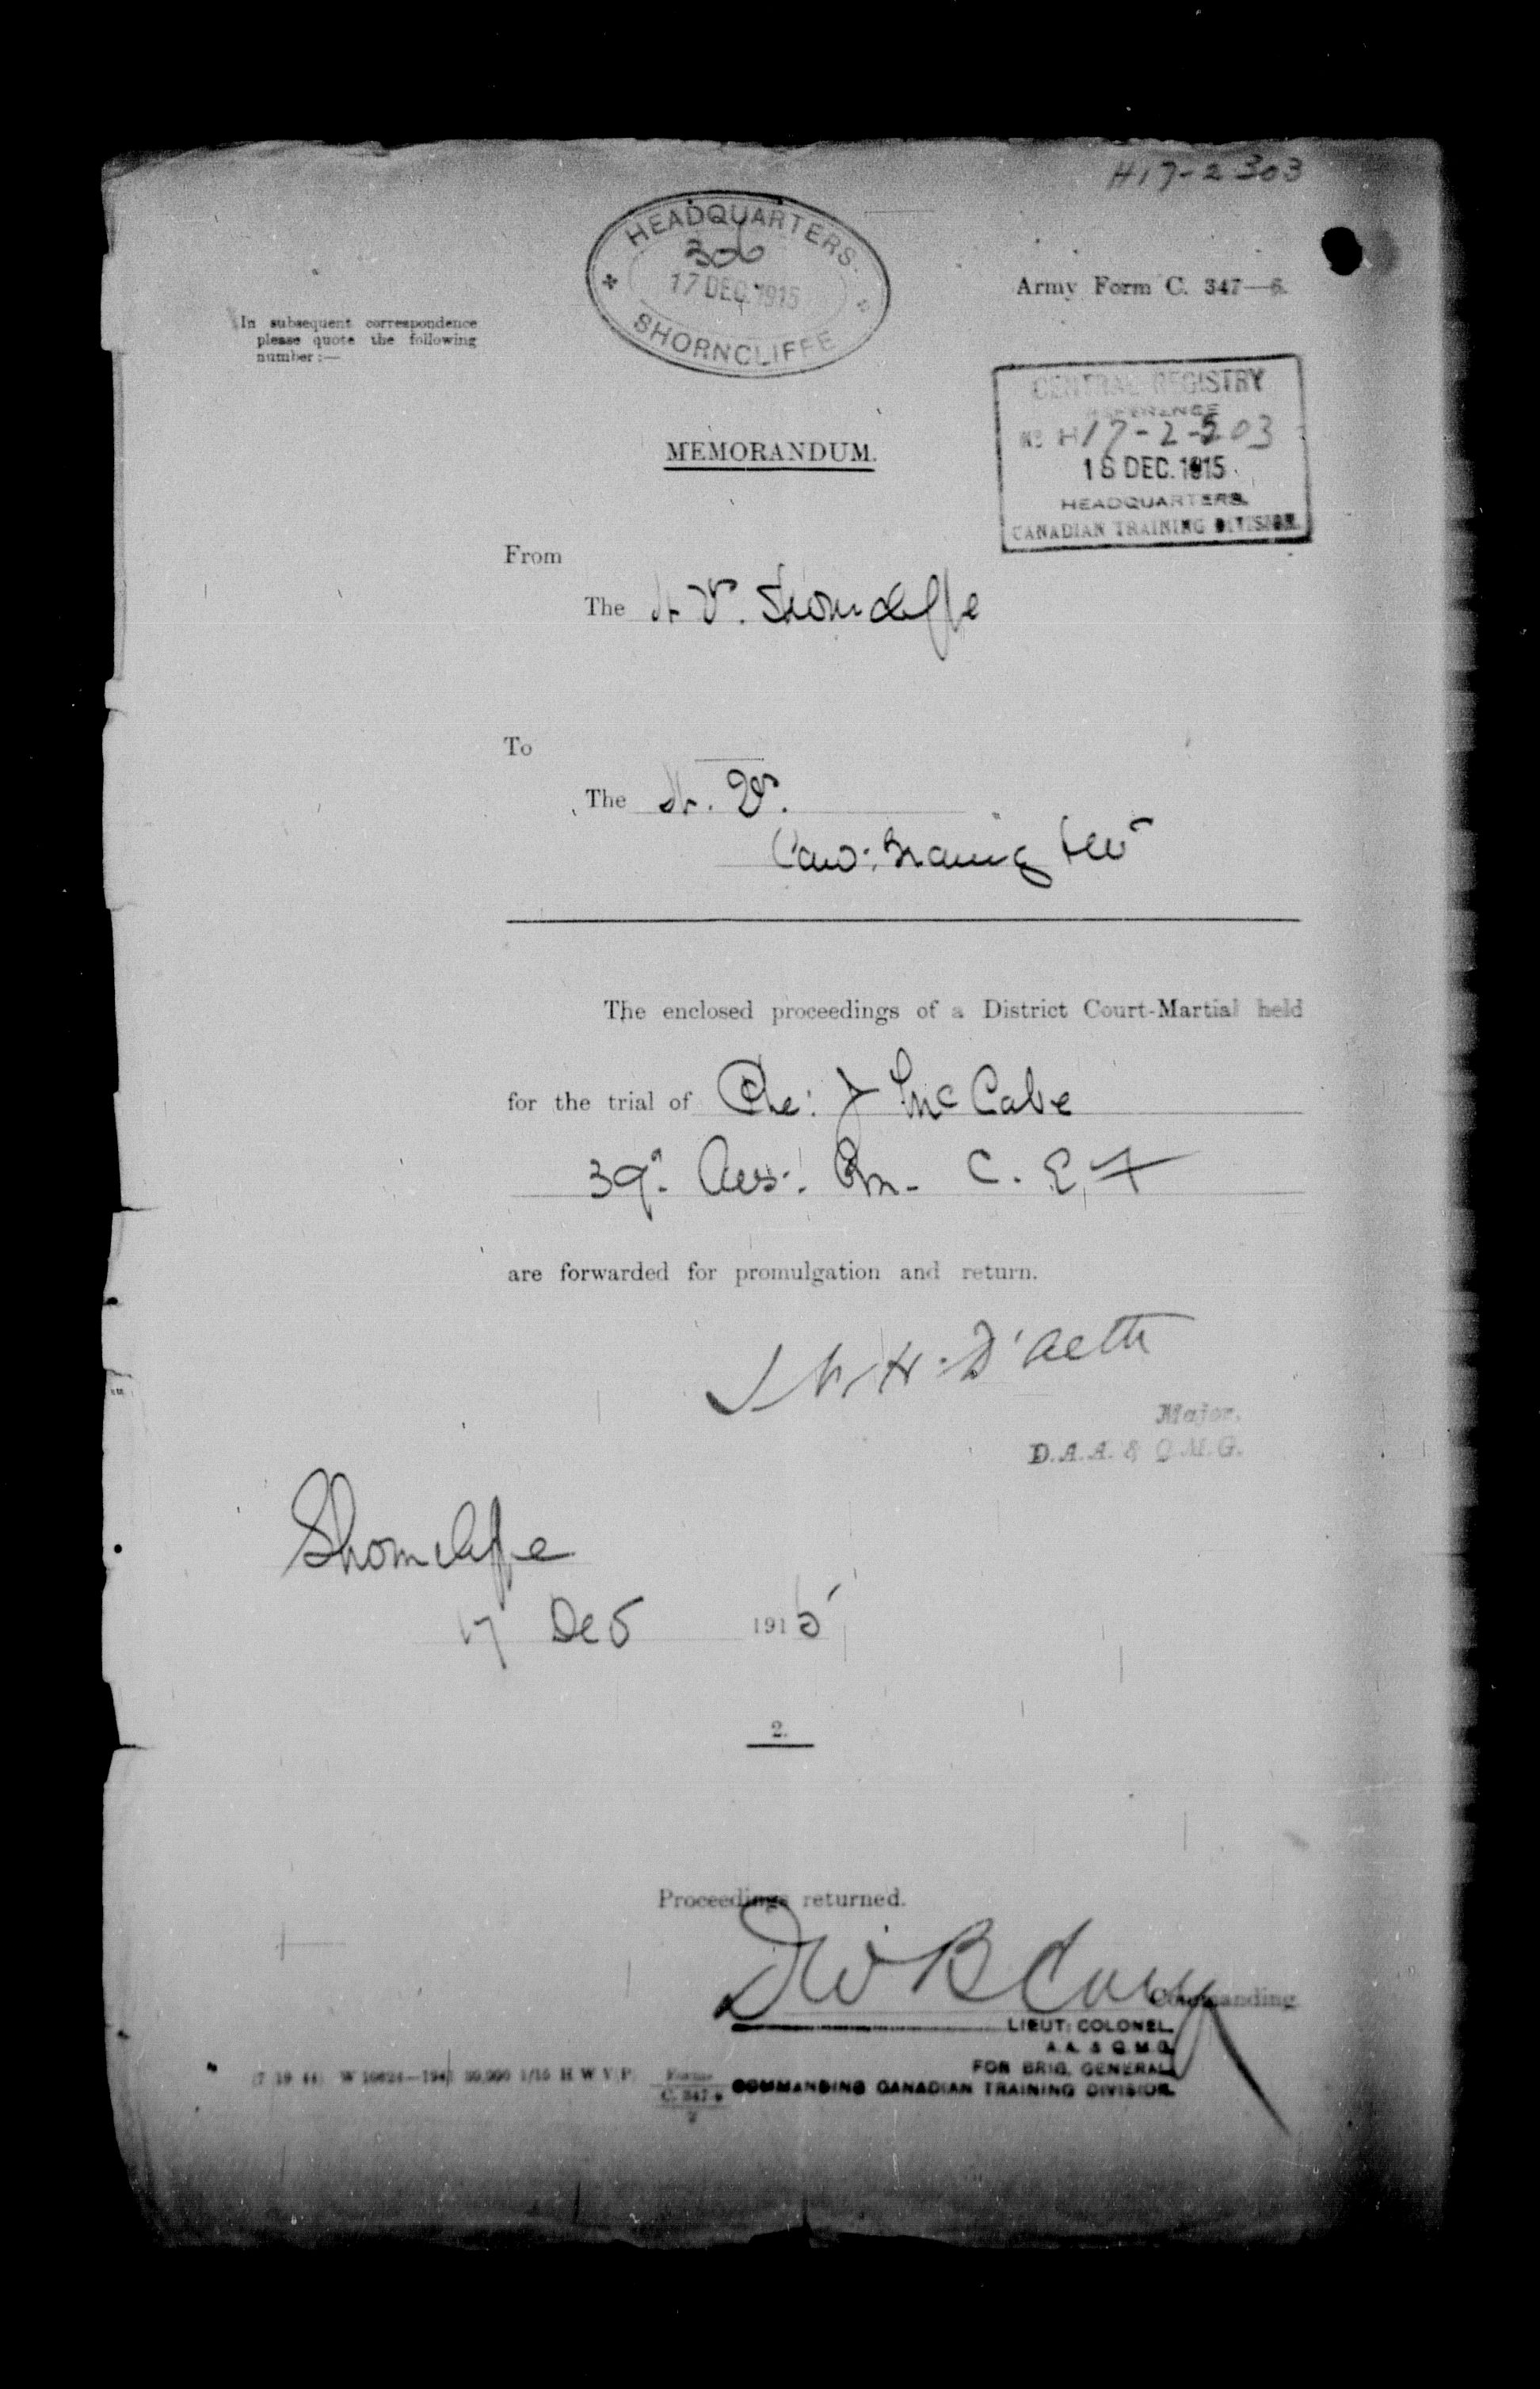 H17-2303
HEADQUARTERS.
306
17 DEC. 1915
SHORNCLIFFE
Army Form C. 347—6.
In subsequent correspondence
please quote the following
number :—
CENTRAL REGISTRY
REFERENCE
No H17-2-303
DEC. 1915
HEADQUARTERS.
CANADIAN TRAINING DIVISION.
MEMORANDUM.
From
The Shorncliffe
To
The
The enclosed proceedings of a District Court-Martial held
for the trial of Pte: J McCabe
39th Res: Bn. C. E. F
are forwarded for promulgation and return.
D'Aeth
Major,
D.A.A. & Q.M.G.
Shorncliffe
17 Dec 1915
2.
Proceedings returned.
Commanding
LIEUT: COLONEL.
A.A. & Q.M.G.
FOR BRIG. GENERAL
COMMANDING CANADIAN TRAINING DIVISION.
Forms
C. 347